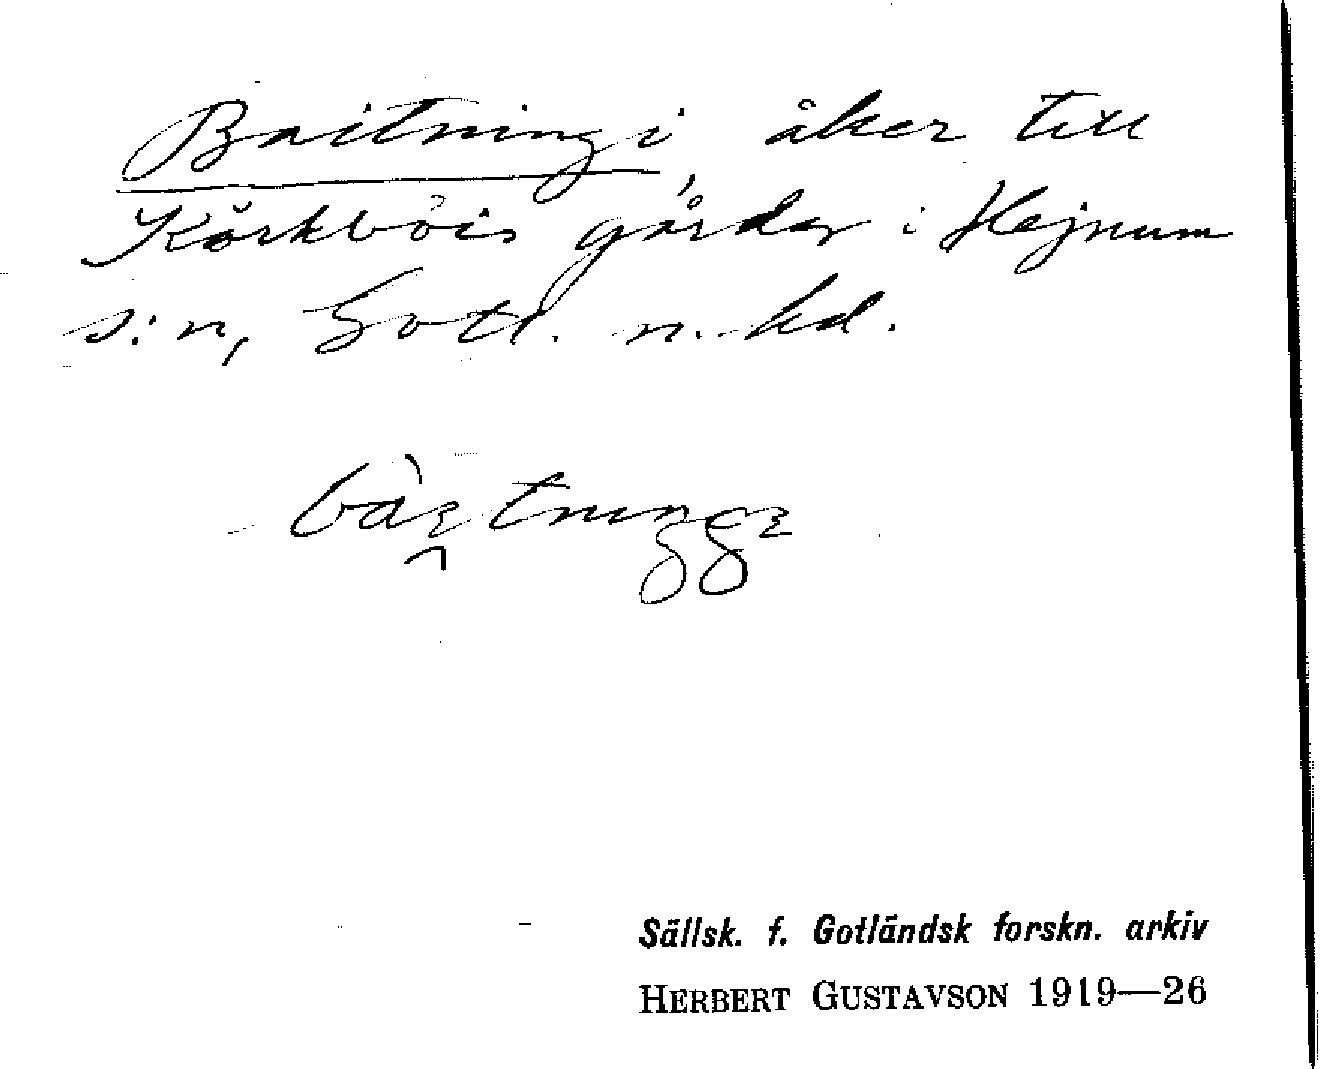 Baitningi, åker till
Körkböis gårdar i Hejnum
s:n, Gotl. n. hd.
Sällsk. f. Gotländsk forskn. arkiv
HERBERT GUSTAVSON 1919—26